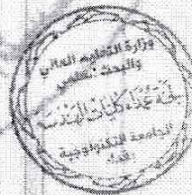 وزارة التعليم العالي
والبحث العلمي
لجنة عمداء كليات الهندسة
الجامعة التكنولوجية
بغداد